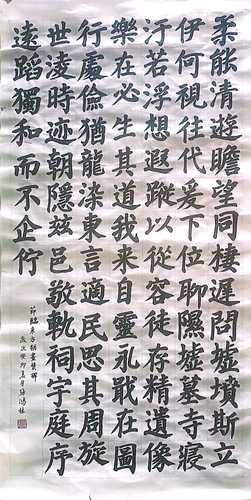 柔能清遊瞻望同棲遲問墟墳斯立
伊何視往代爰下位聊隰墟墓寺寢
汙若浮想遐蹤以從容徒存精遺像
樂在必生其道我来自靈永戢在圖
行處儉猶龍染東言適民思其周旋
世淩時迹朝隱茲邑敬軌祠宇庭序
遠蹈獨和而不企佇
節臨東方朔畫贊碑
歲次癸卯夏月